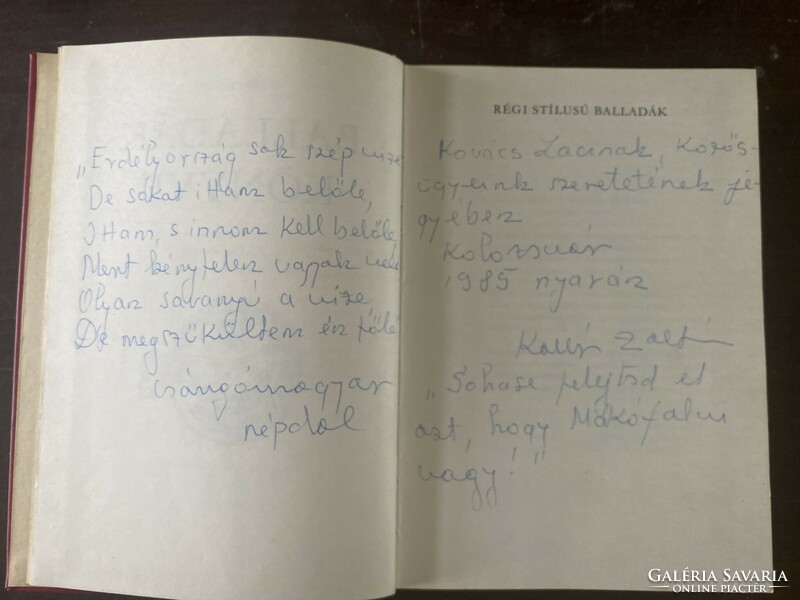 „Erdélyország sok szép vize
De sokat ittam belőle,
Ittam, s innom kell belőle,
Mert kénytelen vagyok vele
Olyan savanyú a vize
De megszűkültem én tőle
csángómagyar
népdal
RÉGI STÍLUSÚ BALLADÁK
Kovács Lacinak, közös-
ügyeink szeretetének je-
gyében
Kolozsvár
1985 nyarán
Kallós Zoltán
„Sohase felejtsd el
azt, hogy Makófalvi
vagy!"
GALÉRIA SAVARIA
ONLINE PIACTÉR